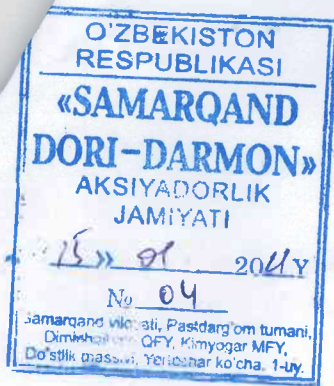 O'ZBEKISTON
RESPUBLIKASI
«SAMARQAND
DORI-DARMON»
AKSIYADORLIK
JAMIYATI
«15» 01 20 Y
№ 04
Samarqand viloyati, Pastdarg'om tumani,
QFY, Kimyogar MFY,
Do'stlik massivi, ko'cha. 1-uy.